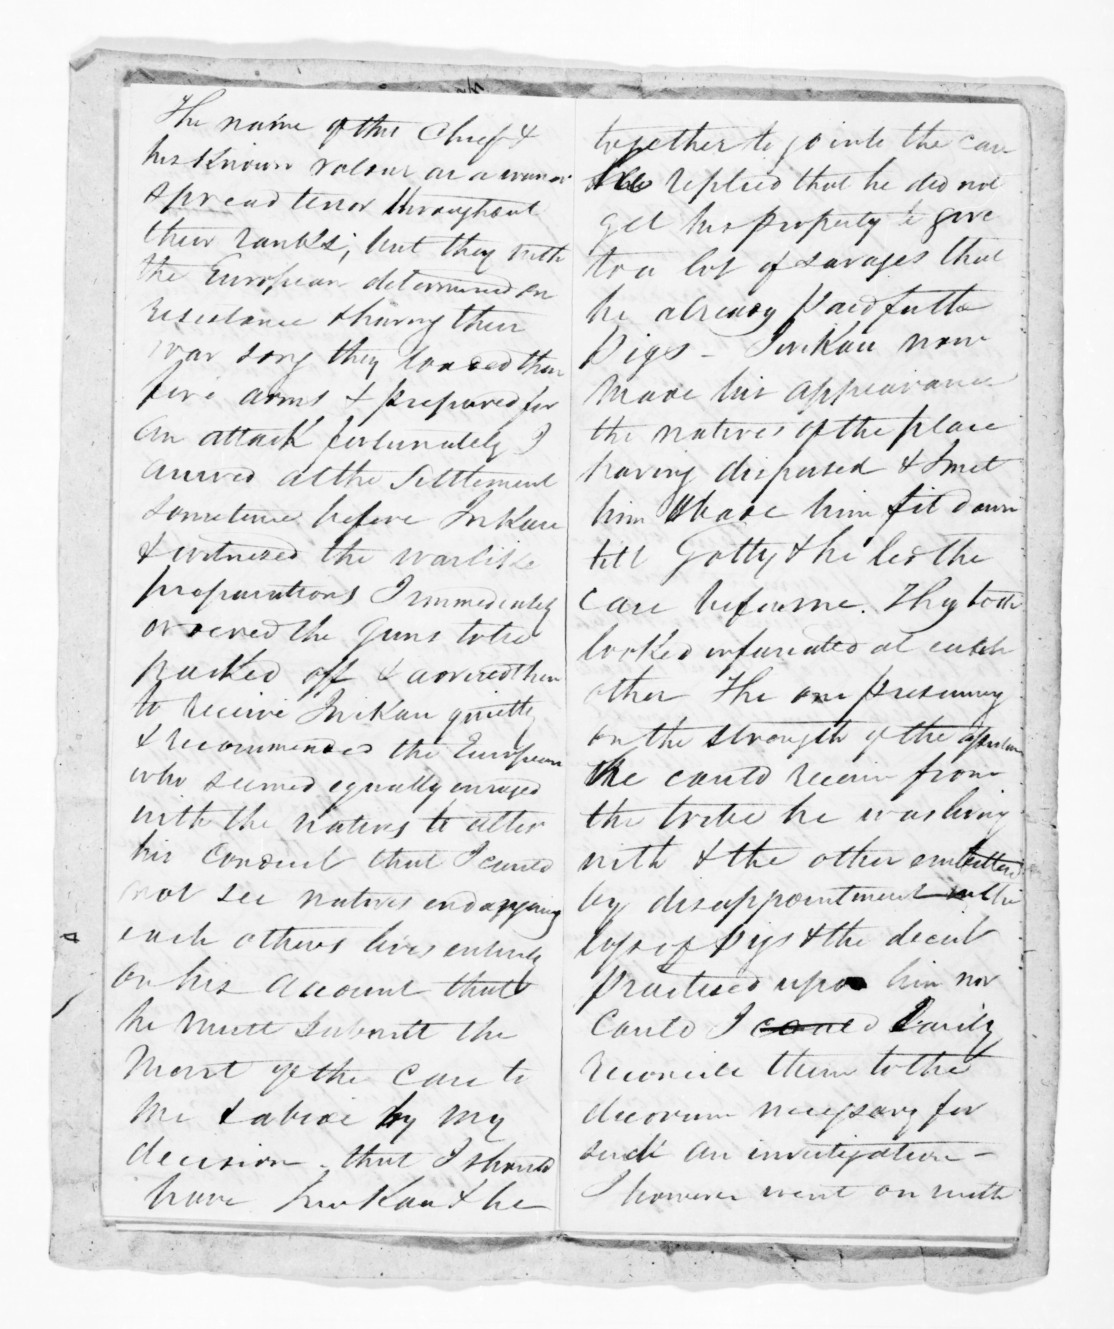 The name of this Chief &
his known valour as a warrior
spread terror throughout
their ranks; but they with
the European determined on
resistance & having their
war song they loaded their
fire arms & prepared for
an attack fortunately I
arrived at the Settlement
sometime before
& witnessed the warlike
preparations I immediately
ordered the Guns to be
packed off & advised them
to receive quietly
& recommended the European
who seemed equally enraged
with the natives to alter
his conduct that I could
not see natives endangering
each others lives entirely
on his account that
he must submit the
Merit of the case to
me & abide by my
decision - that I should
have & he
together to go into the case
He replied that he did not
get his property to give
to a lot of savages that
he already paid for the
Pigs - now
made his appearance
the natives of the place
having dispersed & I met
him & bade him sit down
till Gotty & he led the
case before me. They both
looked infuriated at each
other The one presuming
on the strength of the
he could receive from
the tribe he was living
with & the other embittered
by disappointment the
loss of Pigs & the deceit
practised upon him nor
could I easily
reconcile them to the
decorum necessary for
such an investigation -
I however went on with